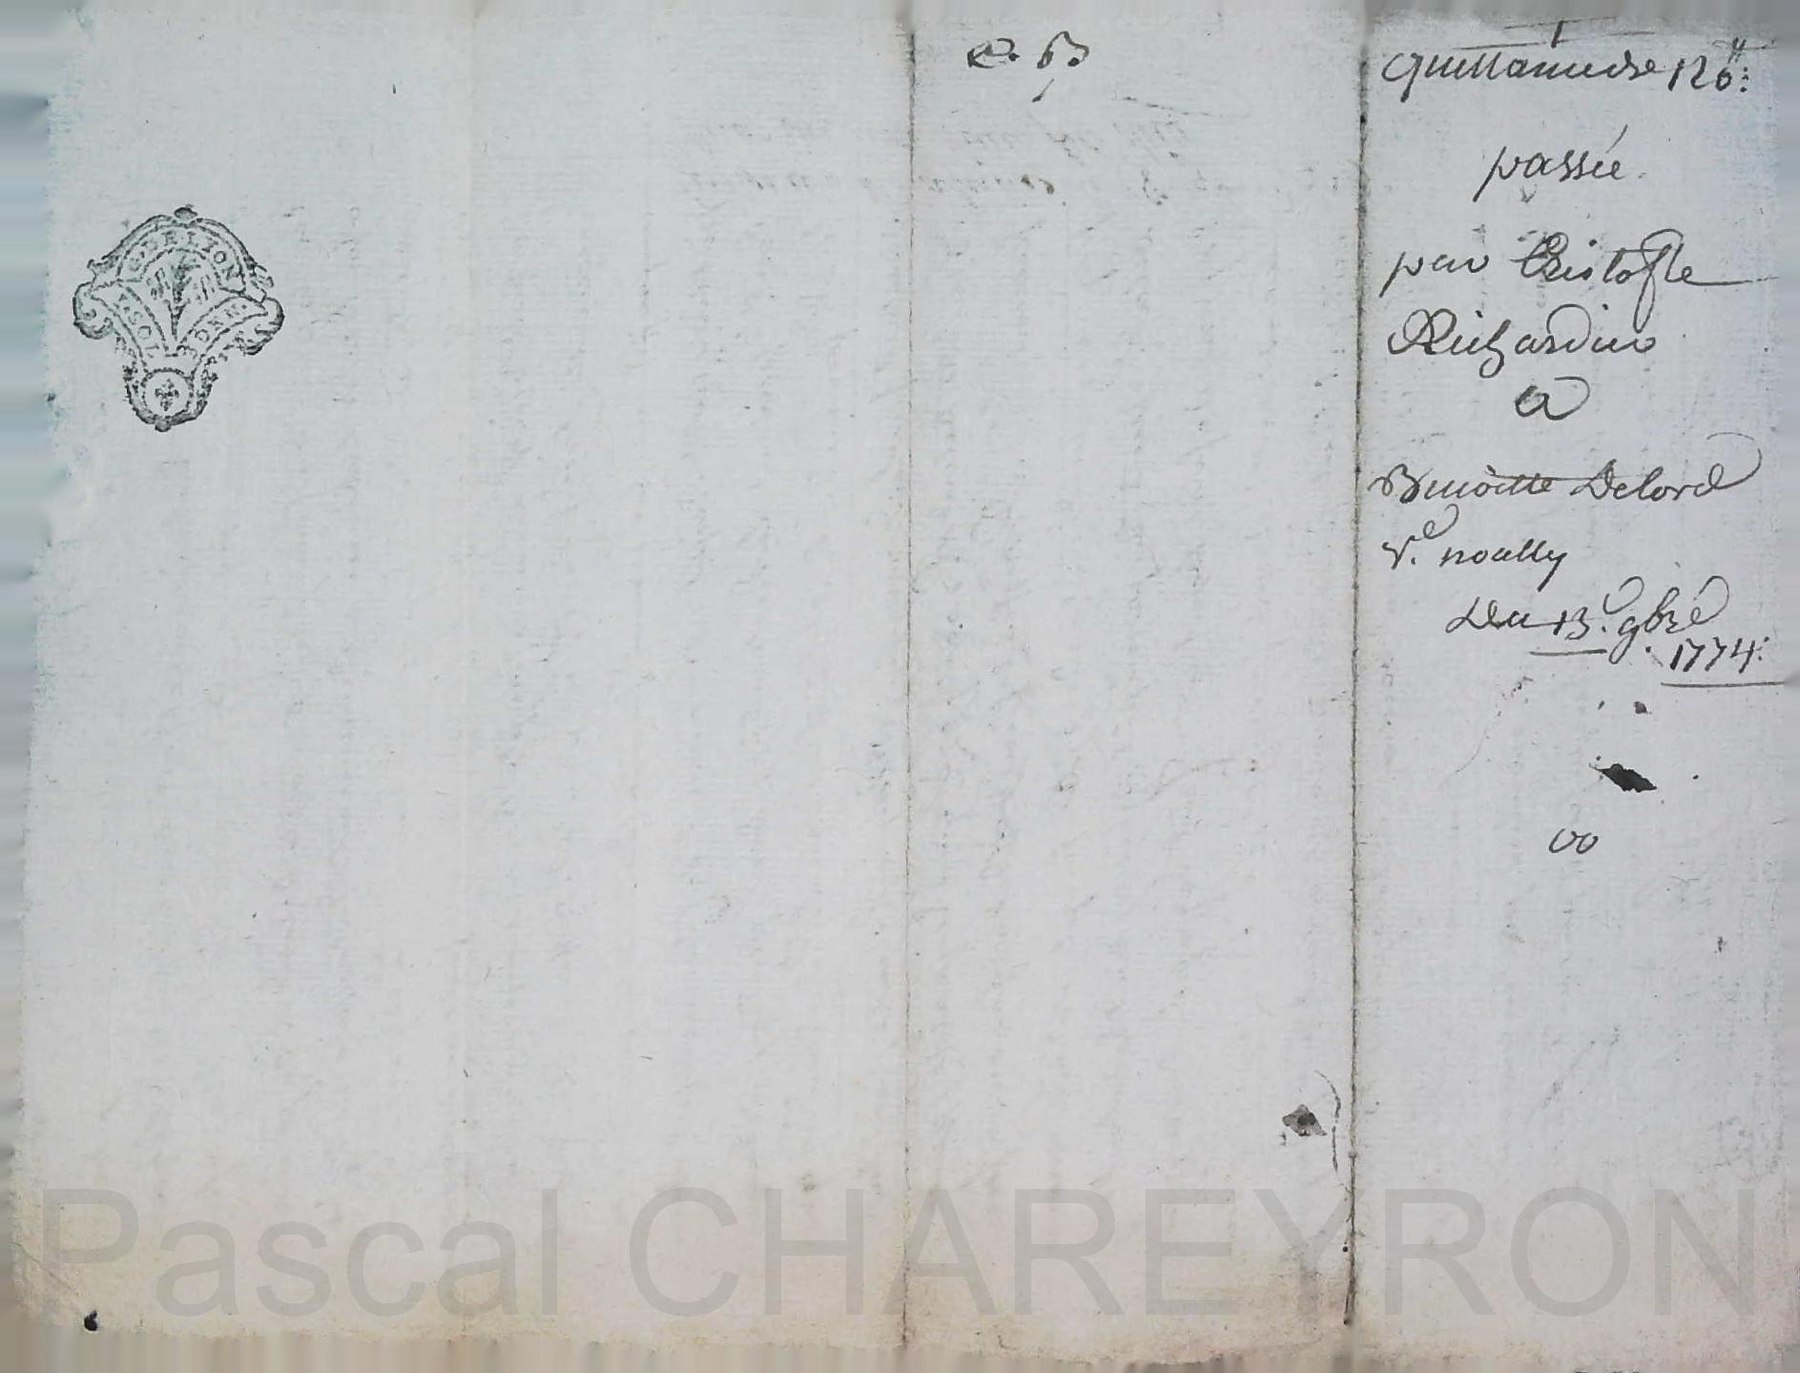 G. DE LYON
Quittance de 126#:
passée
par Cristofle
Richardin
a
Benoitte Delord
Ve. noally
Du 13e. 9bre
1774:
Pascal CHAREYRON